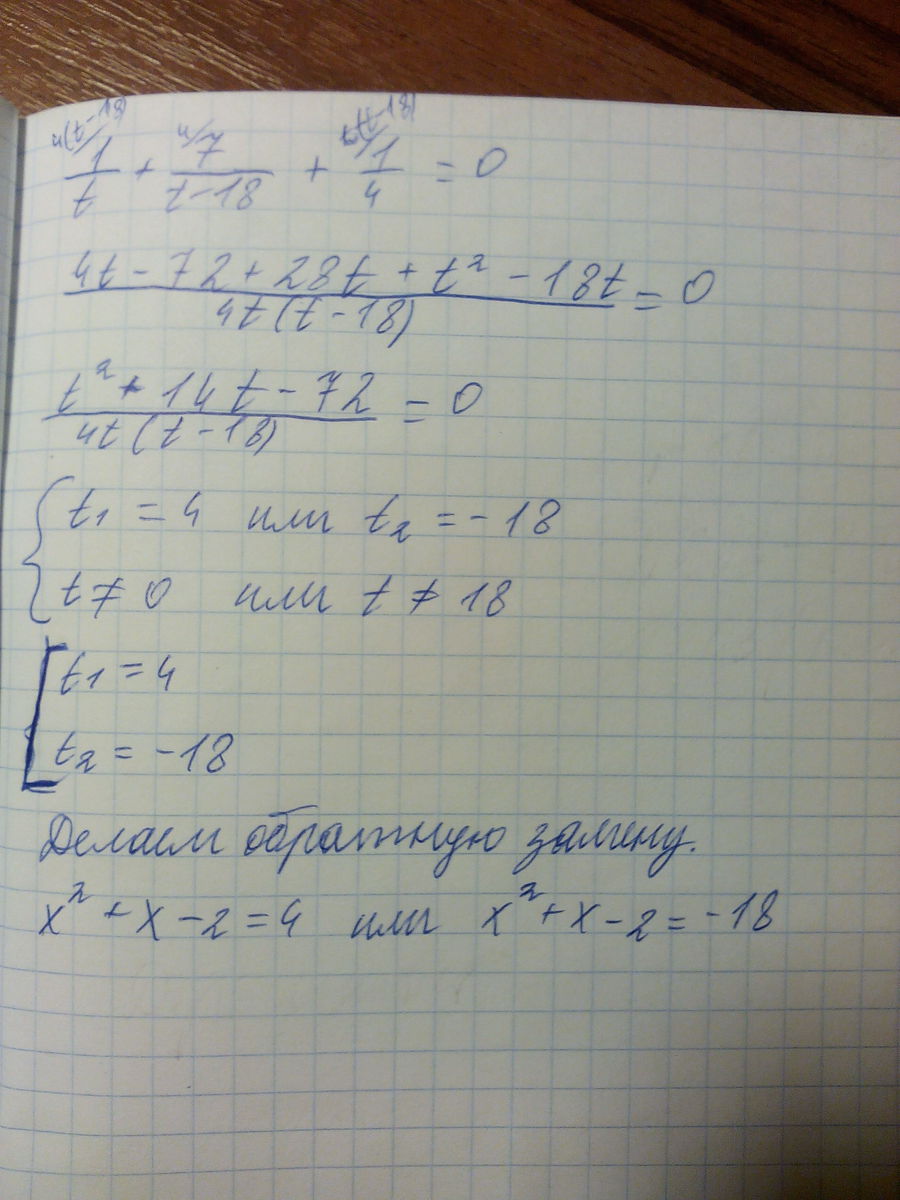 4(t-18)/ 4/ t(t-18)/
1/t + 7/(t-18) + 1/4 = 0
(4t - 72 + 28t + t² - 18t)/(4t(t-18)) = 0
(t² + 14t - 72)/(4t(t-18)) = 0
{ t₁ = 4 или t₂ = -18
t ≠ 0 или t ≠ 18
[ t₁ = 4
t₂ = -18
Делаем обратную замену.
x² + x - 2 = 4 или x² + x - 2 = -18